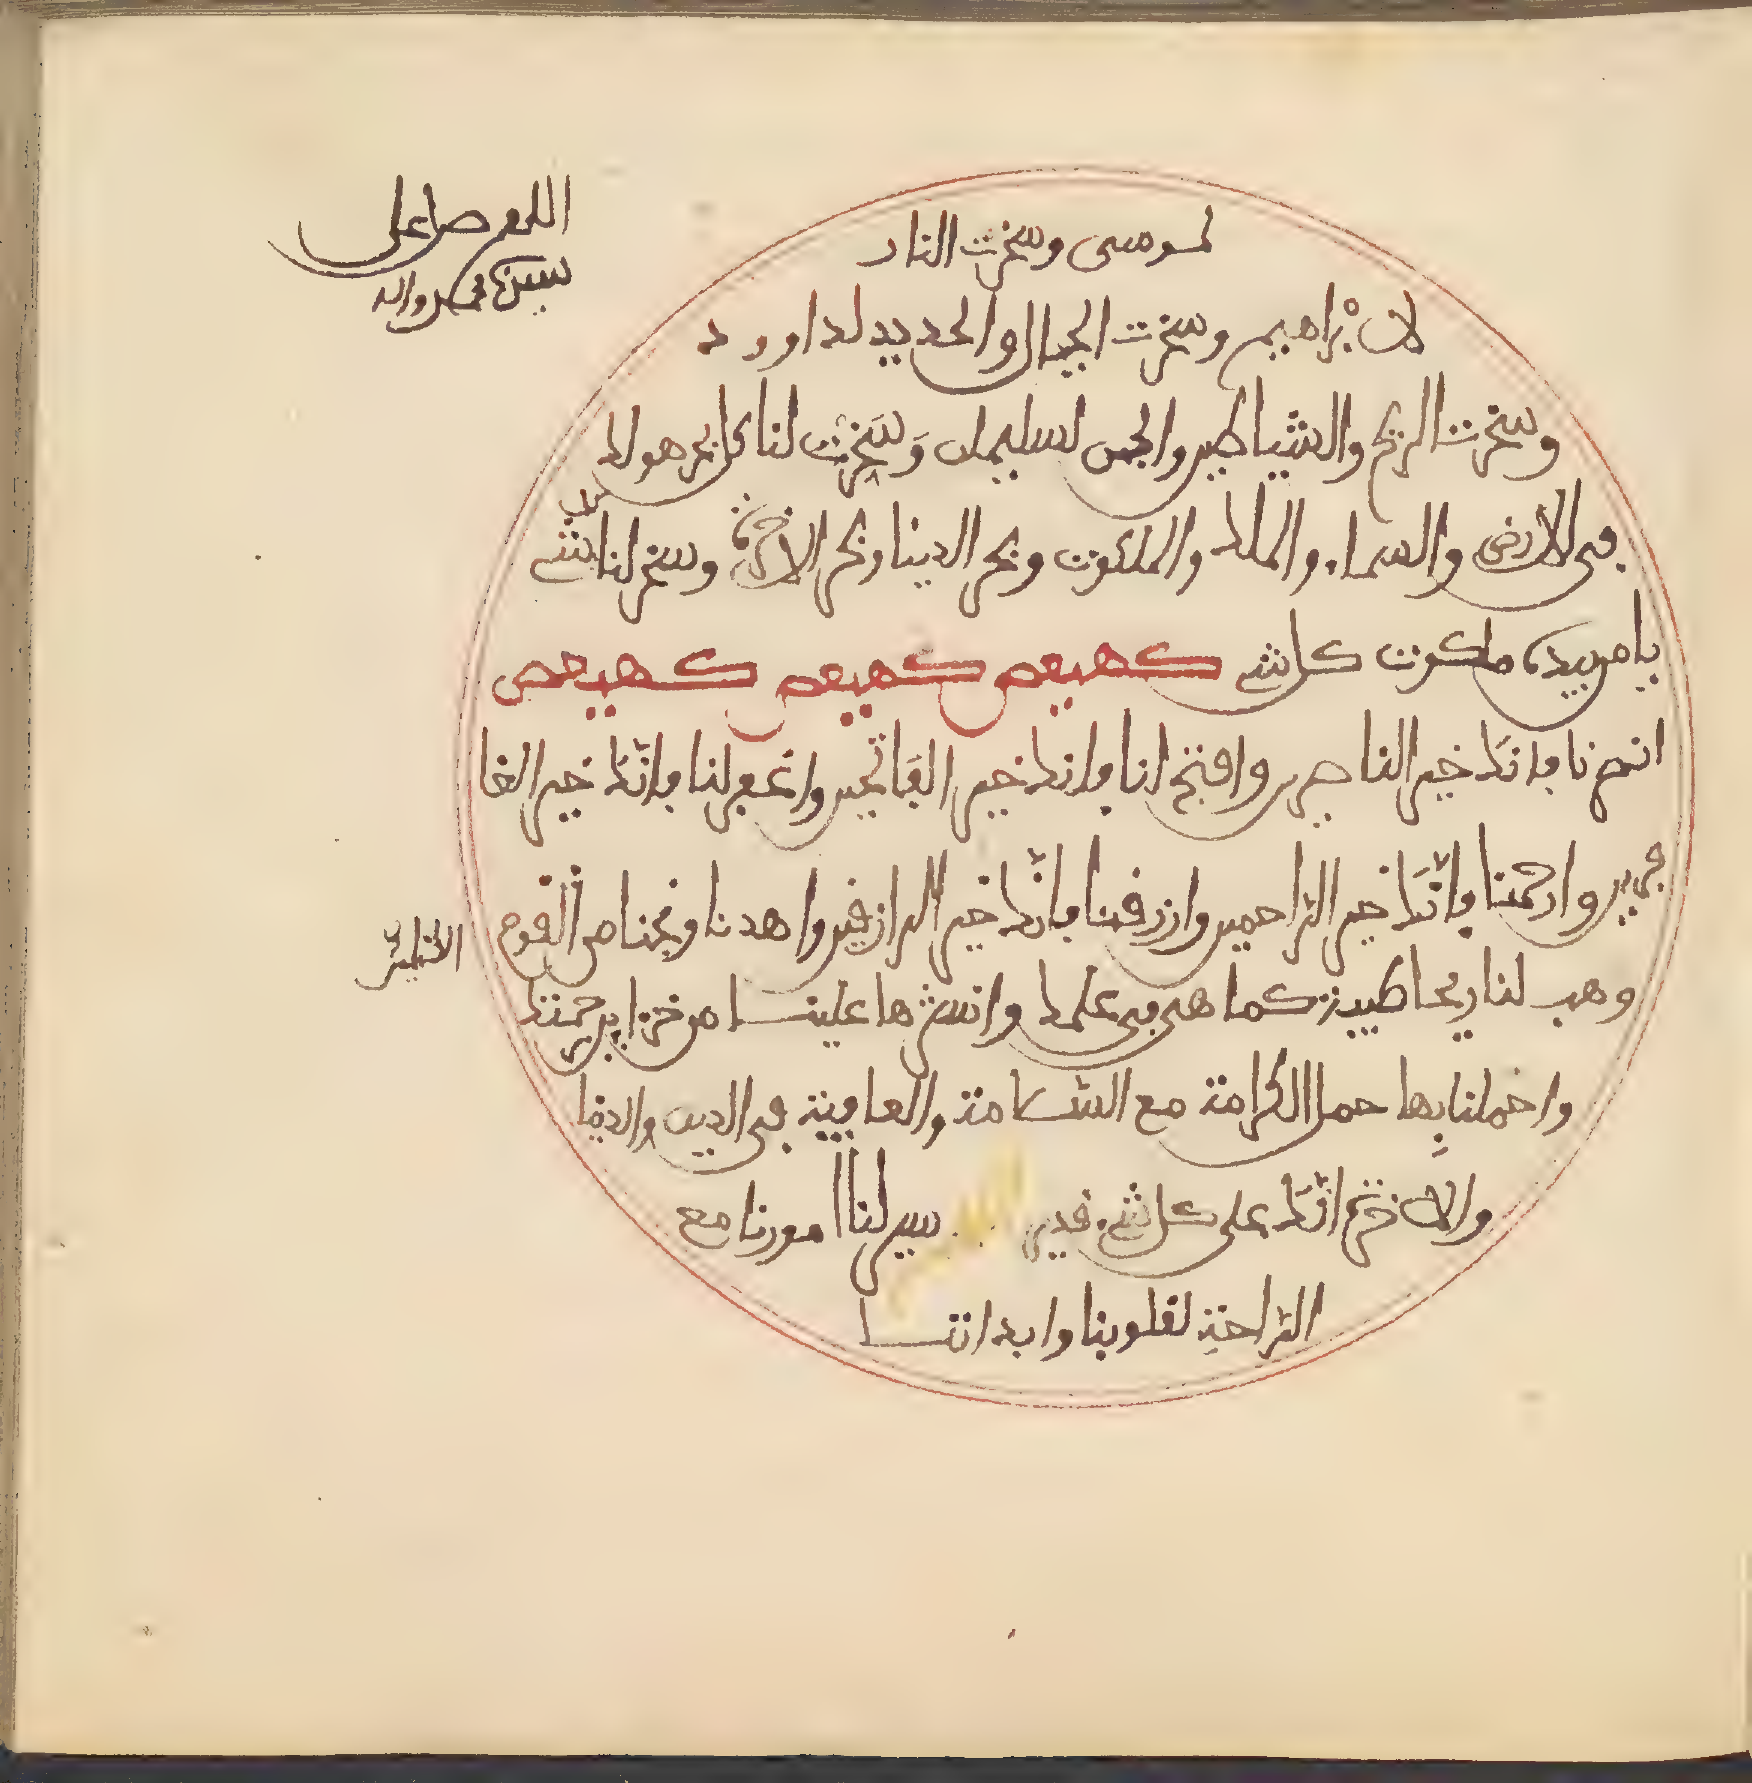 اللهم صل على
سيدنا محمد واله
لموسى وسخرت النار
لابراهيم وسخرت الجبال والحديد لداوود
وسخرت الريح والشياطين والجن لسليمان وَسَخِّرْ لنا كل بحر هو لك
في الارض والسماء والملك والملكوت وبحر الدنيا وبحر الاخرة وسخر لنا كل شيء
يا من بيده ملكوت كل شيء كهيعص كهيعص كهيعص
انصرنا فانك خير الناصرين وافتح لنا فانك خير الفاتحين واغفر لنا فانك خير الغا
فرين وارحمنا فانك خير الراحمين وارزقنا فانك خير الرازقين واهدنا ونجنا من القوم
الظالمين
وهب لنا ريحا طيبة كما هي في علمك وانشرها علينا من خزاين رحمتك
واحملنا بها حمل الكرامة مع السلامة والعافية في الدين والدنيا
والاخرة انك على كل شيء قدير اللهم يسر لنا امورنا مع
الراحة لقلوبنا وابداننا